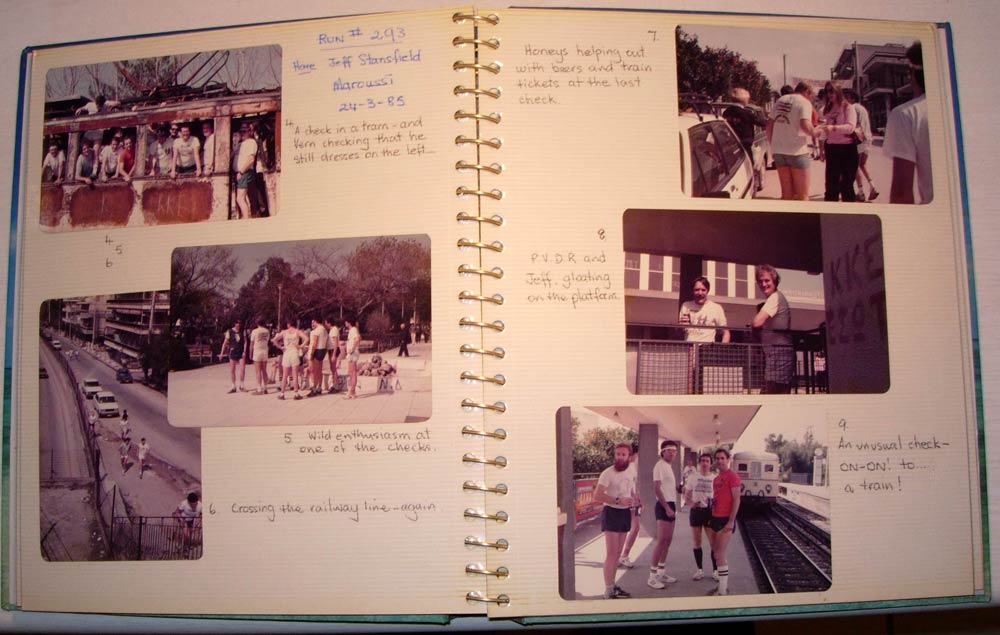 RUN # 293
Hare Jeff Stansfield
Maroussi
24-3-85
4. A check in a tram - and
Vern checking that he
still dresses on the left...
4
5
6
KKE
N.Δ
5. Wild enthusiasm at
one of the checks.
6. Crossing the railway line - again
7.
Honeys helping out
with beers and train
tickets at the last
check.
8.
P.V.D.R. and
Jeff. gloating
on the platform.
KKE
9.
An unusual check -
ON-ON! to....
a train!